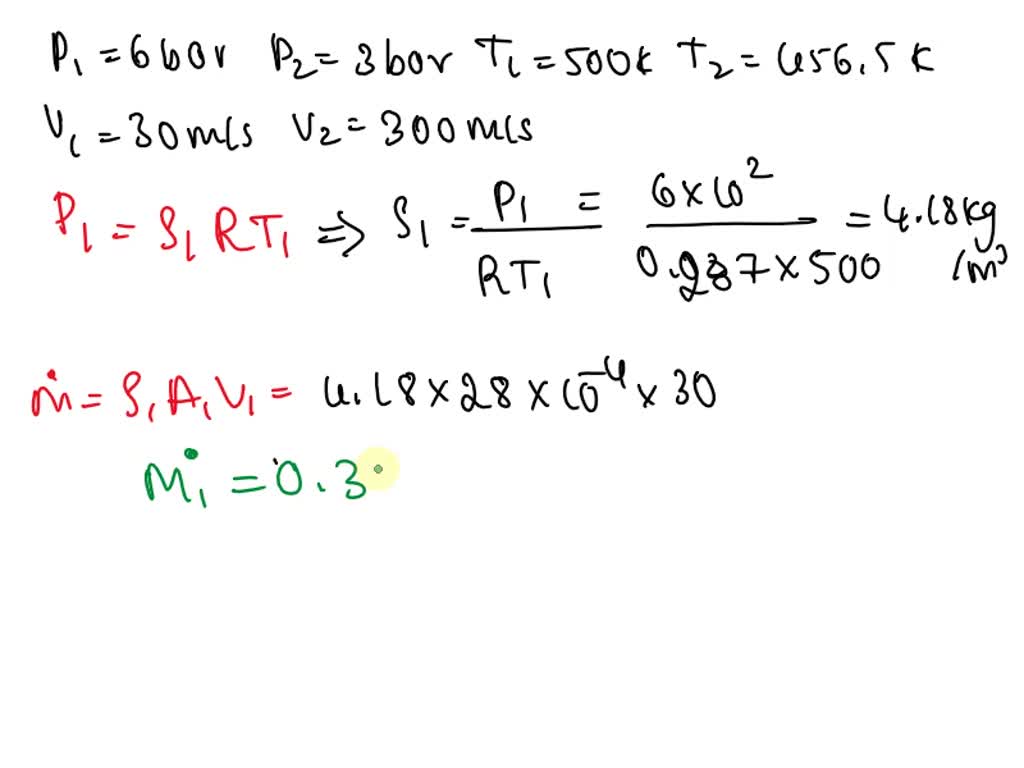 P₁ = 6 bar P₂ = 3 bar T₁ = 500K T₂ = 456.5 K
V₁ = 30 m/s V₂ = 300 m/s
P₁ = ρ₁ R T₁ ⇒ ρ₁ = P₁ / RT₁ = 6 × 10² / 0.287 × 500 = 4.18 kg/m³
ṁ = ρ₁ A₁ V₁ = 4.18 × 28 × 10⁻⁴ × 30
ṁ₁ = 0.3